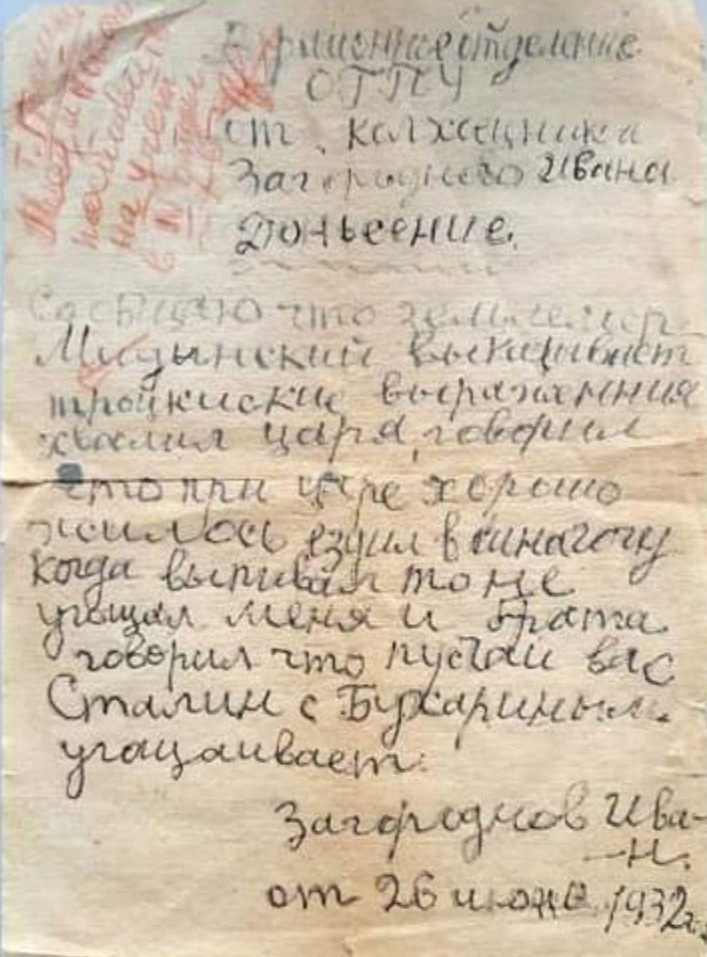 В раионное отделение
ОГПУ
от колхозника
Загороднего Ивана
Доньесение.
на учет
в
Сообщаю что землемер
Мидынский выказывает
троцкиские выраженния
хвалил царя, говорил
что при царе хорошо
жилось ездил в синагогу
когда выпивал то не
угощал меня и брата
говорил что пускаи вас
Сталин с Бухариным
угащаивает.
Загороднов Ива-
-н.
от 26 июня 1932 г.